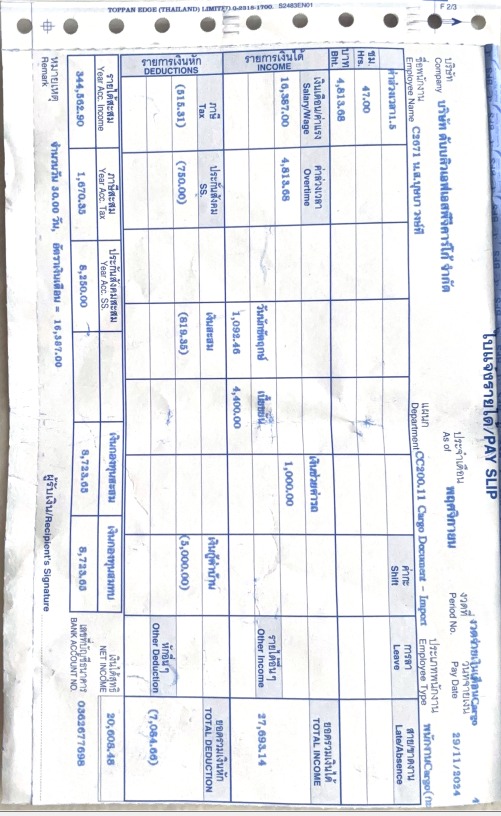 TOPPAN EDGE (THAILAND) LIMITED 0-2318-1700. S2483EN01
F 2/3
ใบแจ้งรายได้/PAY SLIP
บริษัท บริษัท ดับบลิวเอฟเอสพีจีคาร์โก้ จำกัด
Company
ประจำเดือน พฤศจิกายน
As of
งวดที่ งวดจ่ายเงินเดือนCargo
Period No.
วันที่จ่ายเงิน 29/11/2024
Pay Date
ชื่อพนักงาน C2671 น.ส.บุษบา วงษ์ดี
Employee Name
แผนก OC200.11 Cargo Document - Import
Department
ประเภทพนักงาน พนักงานCargo
Employee Type
ค่าล่วงเวลา1.5
ค่ากะ
Shift
การลา
Leave
สาย/ขาดงาน
Late/Absence
ชม. 47.00
Hrs.
บาท 4,813.68
Bht.
รายการเงินได้
INCOME
เงินเดือน/ค่าแรง ค่าล่วงเวลา วันนักขัตฤกษ์ เบี้ยขยัน เงินช่วยค่ารถ รายได้อื่นๆ ยอดรวมเงินได้
Salary/Wage Overtime Other Income TOTAL INCOME
16,387.00 4,813.68 1,092.46 4,400.00 1,000.00 27,693.14
รายการเงินหัก
DEDUCTIONS
ภาษี ประกันสังคม เงินสะสม เงินกู้ค่าบ้าน หักอื่นๆ ยอดรวมเงินหัก
Tax SS. Other Deduction TOTAL DEDUCTION
(515.31) (750.00) (819.35) (5,000.00) (7,084.66)
รายได้สะสม ภาษีสะสม ประกันสังคมสะสม เงินกองทุนสะสม เงินกองทุนสมทบ เงินได้สุทธิ
Year Acc. Income Year Acc. Tax Year Acc. SS. NET INCOME
344,562.90 1,670.35 8,250.00 8,723.65 8,723.65 20,608.48
เลขที่บัญชีธนาคาร 0362677698
BANK ACCOUNT NO.
หมายเหตุ จำนวนวัน 30.00 วัน, อัตราเงินเดือน = 16,387.00
Remark
ผู้รับเงิน/Recipient's Signature